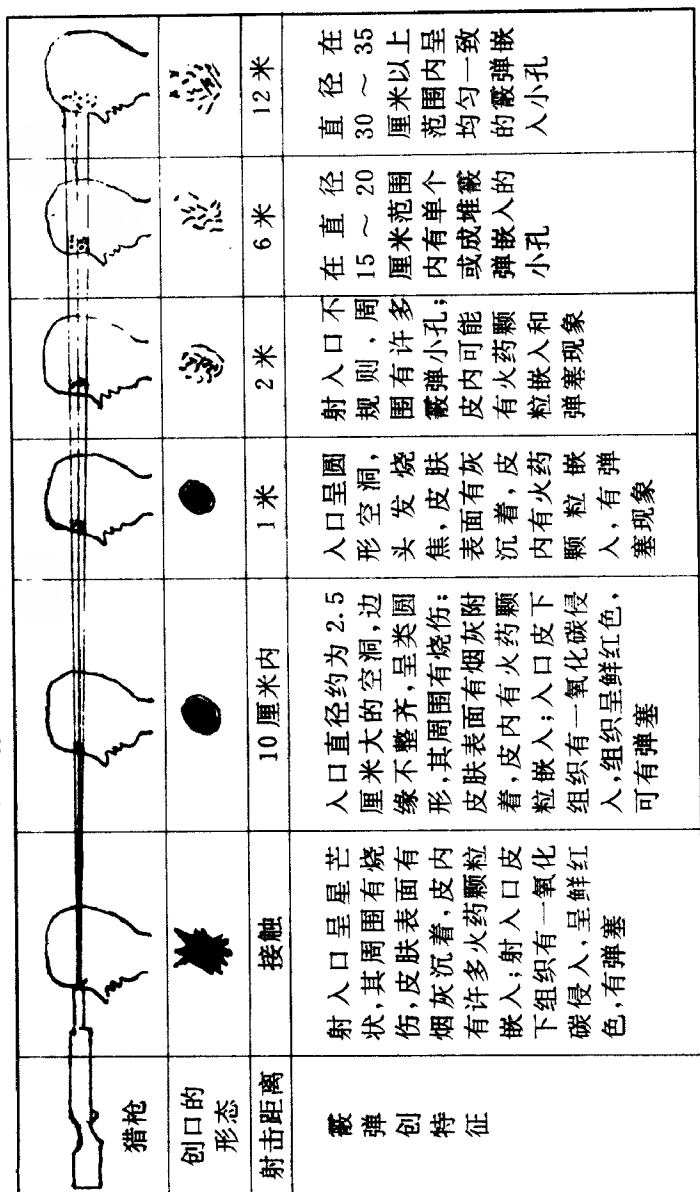 猎枪
创口的
形态
射击距离
接触
10厘米内
1米
2米
6米
12米
霰弹创
特征
射入口呈星芒
状,其周围有烧
伤,皮肤表面有
烟灰沉着,皮内
有许多火药颗粒
嵌入;射入口皮
下组织有一氧化
碳侵入,呈鲜红
色,有弹塞
入口直径约为2.5
厘米大的空洞,边
缘不整齐,呈类圆
形,其周围有烧伤;
皮肤表面有烟灰附
着,皮内有火药颗
粒嵌入;入口皮下
组织有一氧化碳侵
入,组织呈鲜红色,
可有弹塞
入口呈圆
形空洞,
头发烧
焦,皮肤
表面有灰
沉着,皮
内有火药
颗粒嵌
入,有弹
塞现象
射入口不
规则,周
围有许多
霰弹小孔;
皮内可能
有火药颗
粒嵌入和
弹塞现象
在直径
15~20
厘米范围
内有单个
或成堆霰
弹嵌入的
小孔
直径在
30~35
厘米以上
范围内呈
均匀一致
的霰弹嵌
入小孔